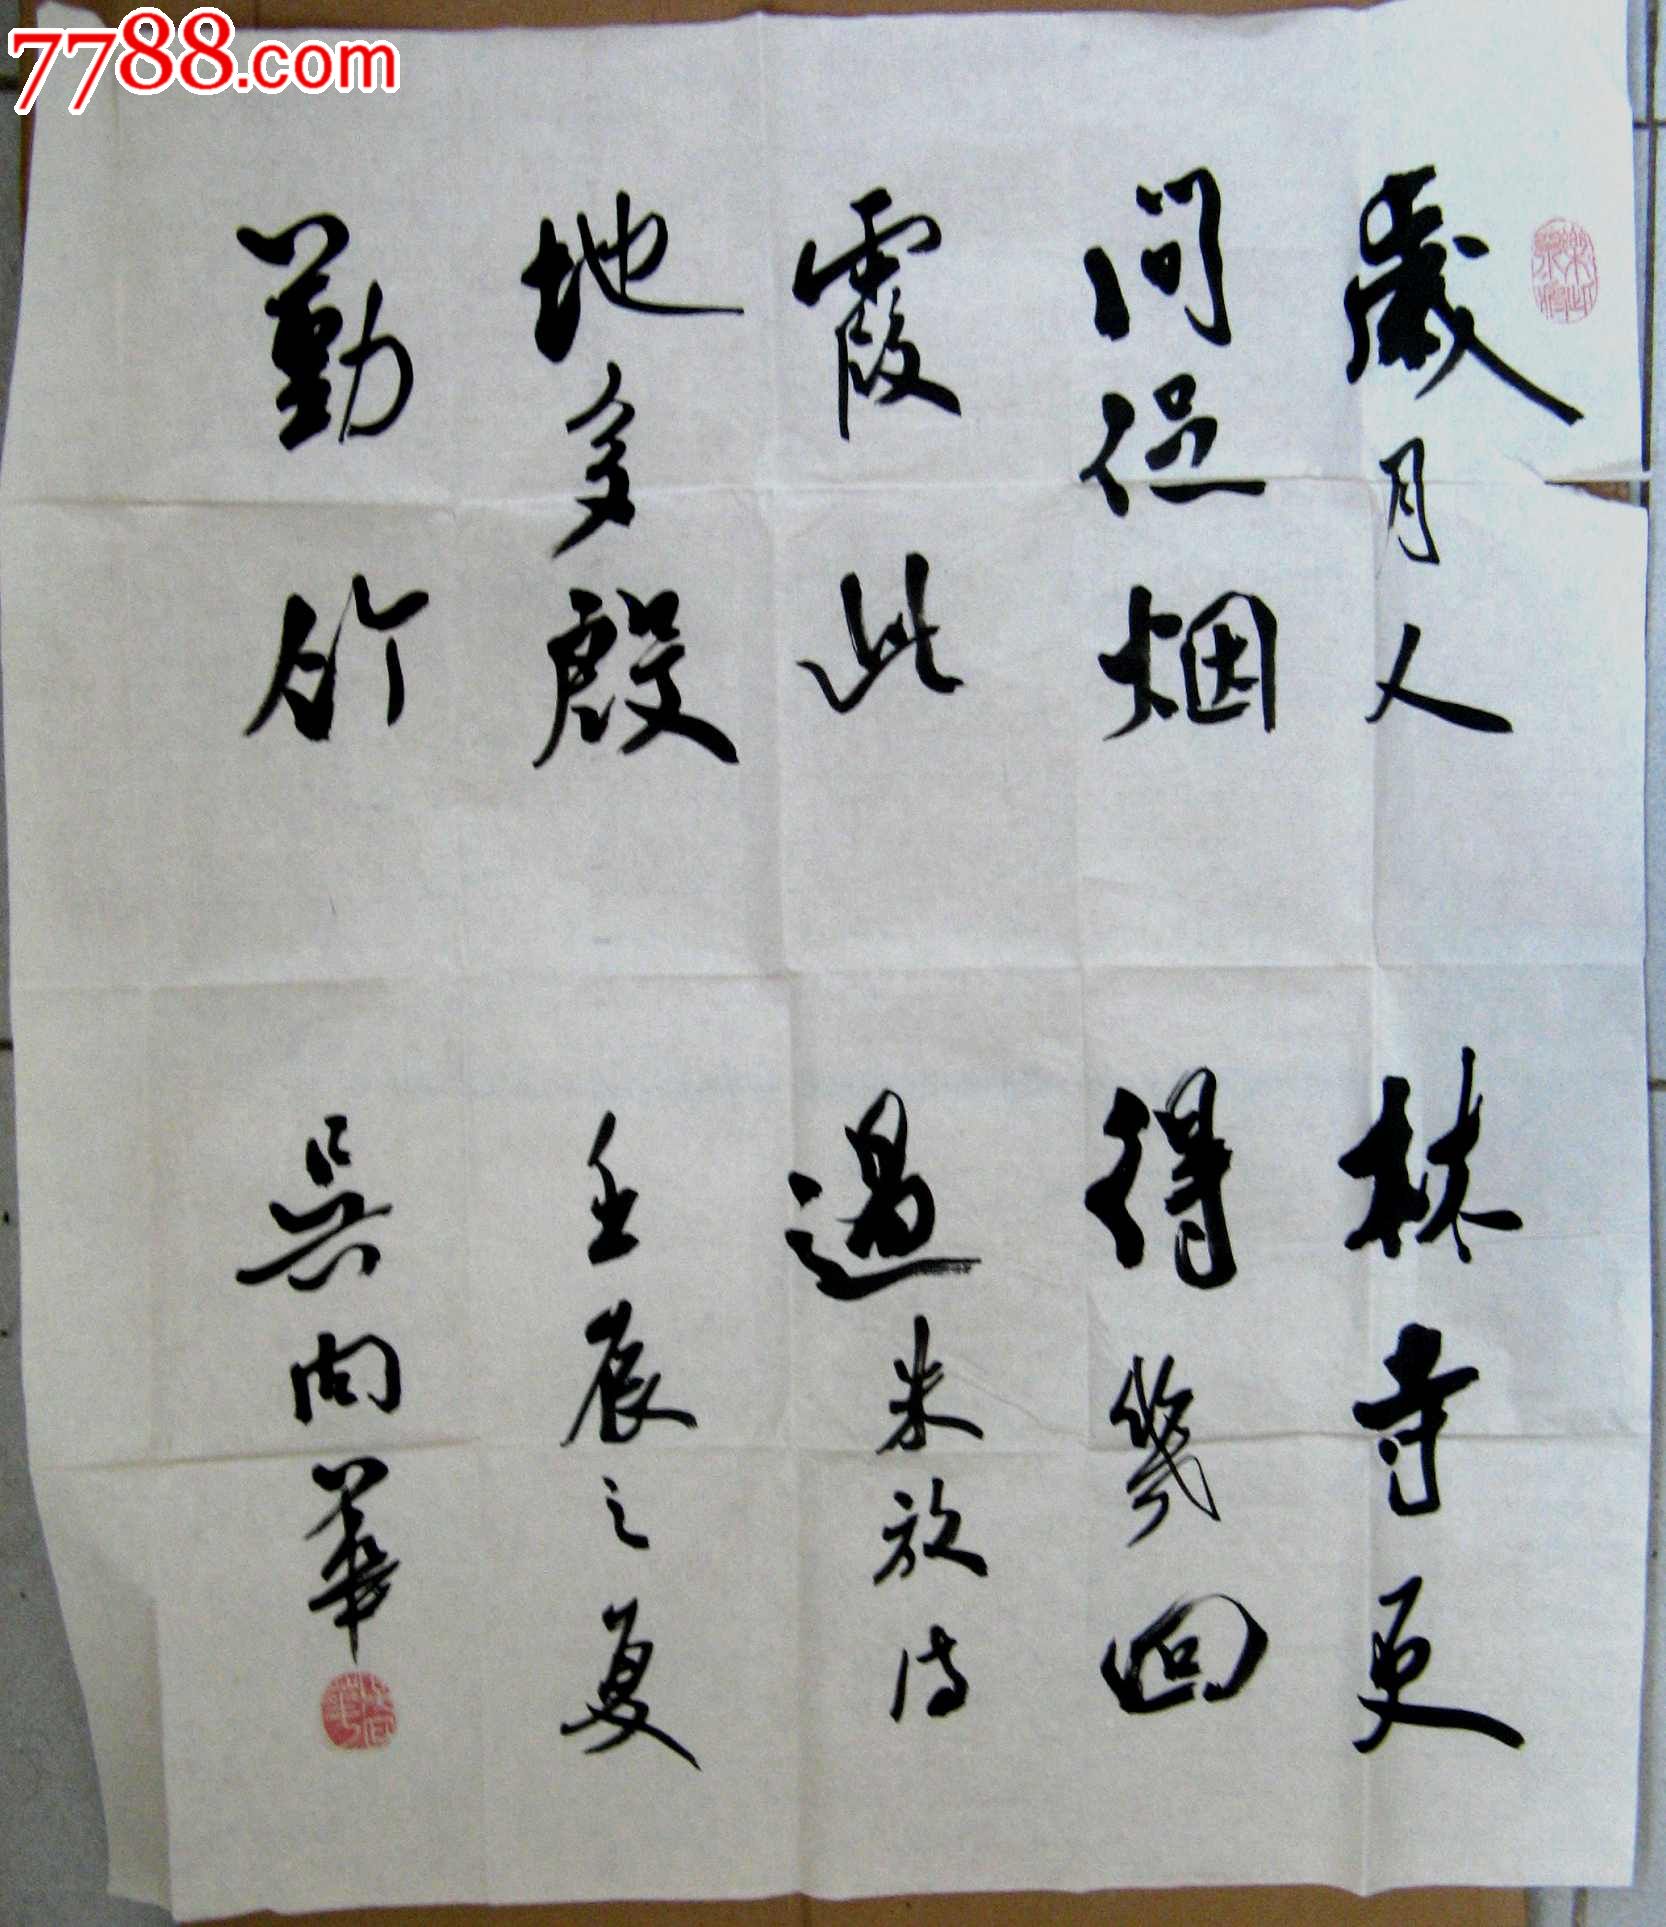 7788.com
歲月人
间促烟
霞此
地多殷
勤竹
林寺更
得幾回
過朱放诗
壬辰之夏
吴向華